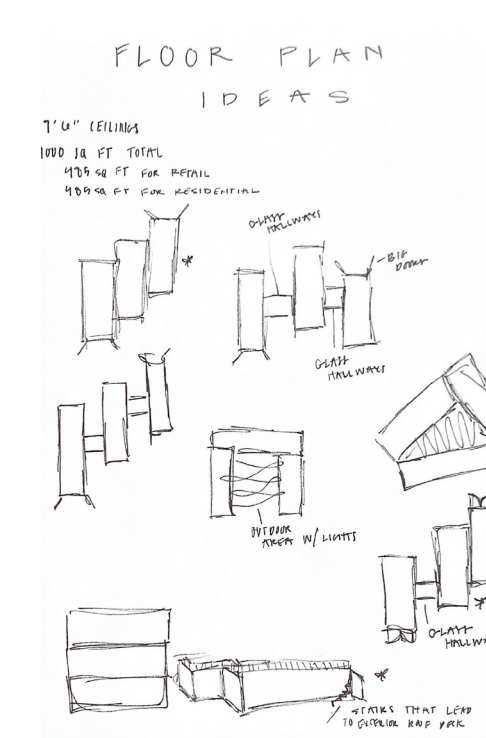 FLOOR PLAN
IDEAS
9'6" CEILINGS
1000 SQ FT TOTAL
485 SQ FT FOR RETAIL
485 SQ FT FOR RESIDENTIAL
GLASS
HALLWAYS
BIG
DOORS
GLASS
HALLWAYS
OUTDOOR
AREA W/ LIGHTS
GLASS
HALLW
STAIRS THAT LEAD
TO EXTERIOR ROOF DECK